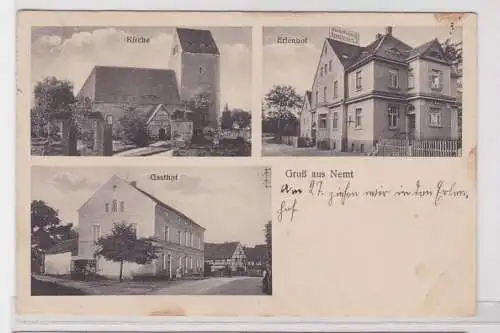 Kirche
Erlenhof
Gasthof
Gruß aus Nemt
Am 27. ziehen wir in den Erlen
hof.